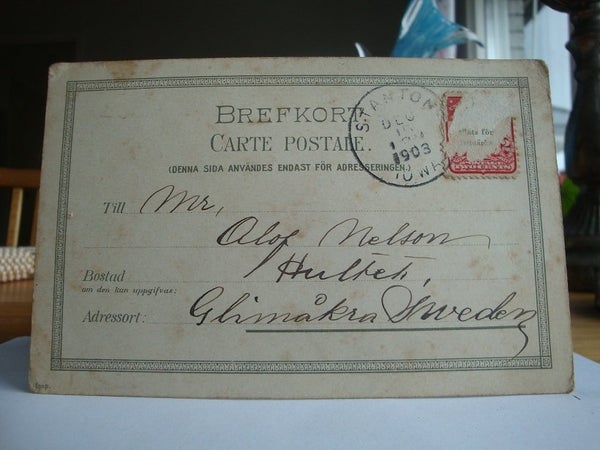 BREFKORT
CARTE POSTALE.
(DENNA SIDA ANVÄNDES ENDAST FÖR ADRESSERINGEN.)
STANTON
DEC
1903
IOWA
för
Till Mr,
Olof Nelson
Bostad Hultet,
om den kan uppgifvas:
Adressort: Glimåkra Sweden
Imp.